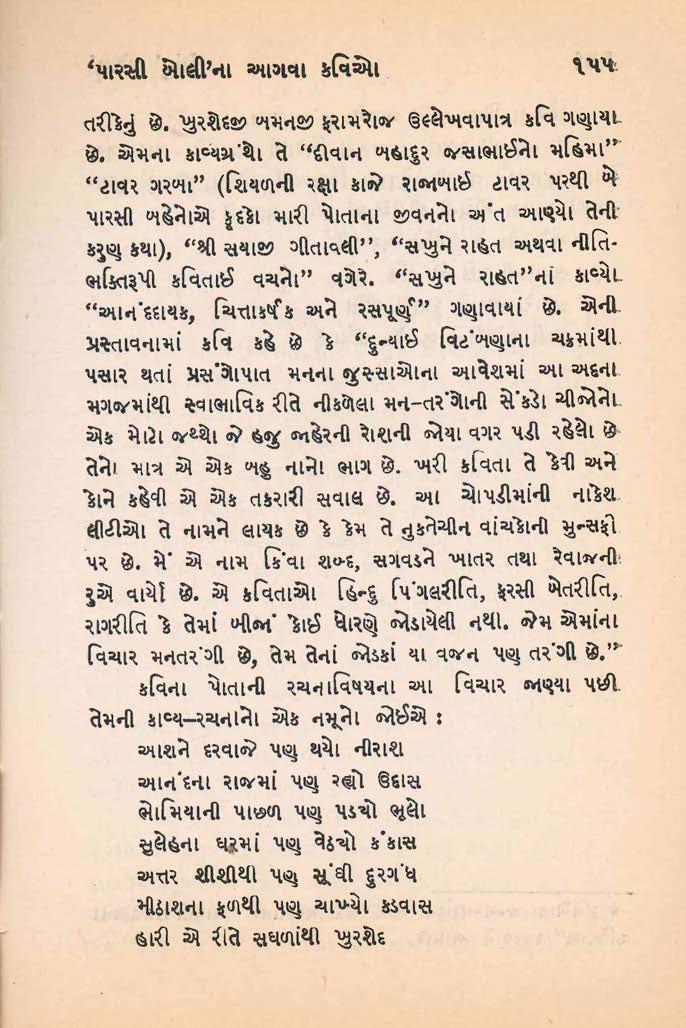 ‘પારસી બોલી’ના આગવા કવિઓ ૧૫૫
તરીકેનું છે. ખુરશેદજી બમનજી ફરામરોજ ઉલ્લેખવાપાત્ર કવિ ગણાયા
છે. એમના કાવ્યગ્રંથો તે “દીવાન બહાદુર જસાભાઈનો મહિમા”
“ટાવર ગરબા” (શિયળની રક્ષા કાજે રાજાબાઈ ટાવર પરથી બે
પારસી બહેનોએ કૂદકો મારી પોતાના જીવનનો અંત આણ્યો તેની
કરુણ કથા), “શ્રી સયાજી ગીતાવલી”, “સખુને રાહત અથવા નીતિ-
ભક્તિરૂપી કવિતાઈ વચનો” વગેરે. “સખુને રાહત”નાં કાવ્યો
“આનંદદાયક, ચિત્તાકર્ષક અને રસપૂર્ણ” ગણાવાયાં છે. એની
પ્રસ્તાવનામાં કવિ કહે છે કે “દુન્યાઈ વિટંબણાના ચક્રમાંથી
પસાર થતાં પ્રસંગોપાત મનના જુસ્સાઓના આવેશમાં આ અદના
મગજમાંથી સ્વાભાવિક રીતે નીકળેલા મન-તરંગોની સેંકડો ચીજોનો
એક મોટો જથ્થો જે હજુ જાહેરની રોશની જોયા વગર પડી રહેલો છે
તેનો માત્ર એ એક બહુ નાનો ભાગ છે. ખરી કવિતા તે કેવી અને
કોને કહેવી એ એક તકરારી સવાલ છે. આ ચોપડીમાંની નાકેશ
લીટીઓ તે નામને લાયક છે કે કેમ તે નુકતેચીન વાંચકોની મુન્સફી
પર છે. મેં એ નામ કિંવા શબ્દ, સગવડને ખાતર તથા રેવાજની
રુએ વાર્યો છે. એ કવિતાઓ હિન્દુ પિંગલરીતિ, ફરસી બેતરીતિ,
રાગરીતિ કે તેમાં બીજાં કોઈ ધોરણે જોડાયેલી નથી. જેમ એમાંના
વિચાર મનતરંગી છે, તેમ તેનાં જોડકાં યા વજન પણ તરંગી છે.”
કવિના પોતાની રચનાવિષયના આ વિચાર જાણ્યા પછી
તેમની કાવ્ય–રચનાનો એક નમૂનો જોઈએ :
આશને દરવાજે પણ થયો નીરાશ
આનંદના રાજમાં પણ રહ્યો ઉદાસ
ભોમિયાની પાછળ પણ પડ્યો ભૂલો
સુલેહના ઘરમાં પણ વેઠ્યો કંકાસ
અત્તર શીશીથી પણ સૂંઘી દુરગંધ
મીઠાશના ફળથી પણ ચાખ્યો કડવાસ
હારી એ રીતે સઘળાંથી ખુરશેદ